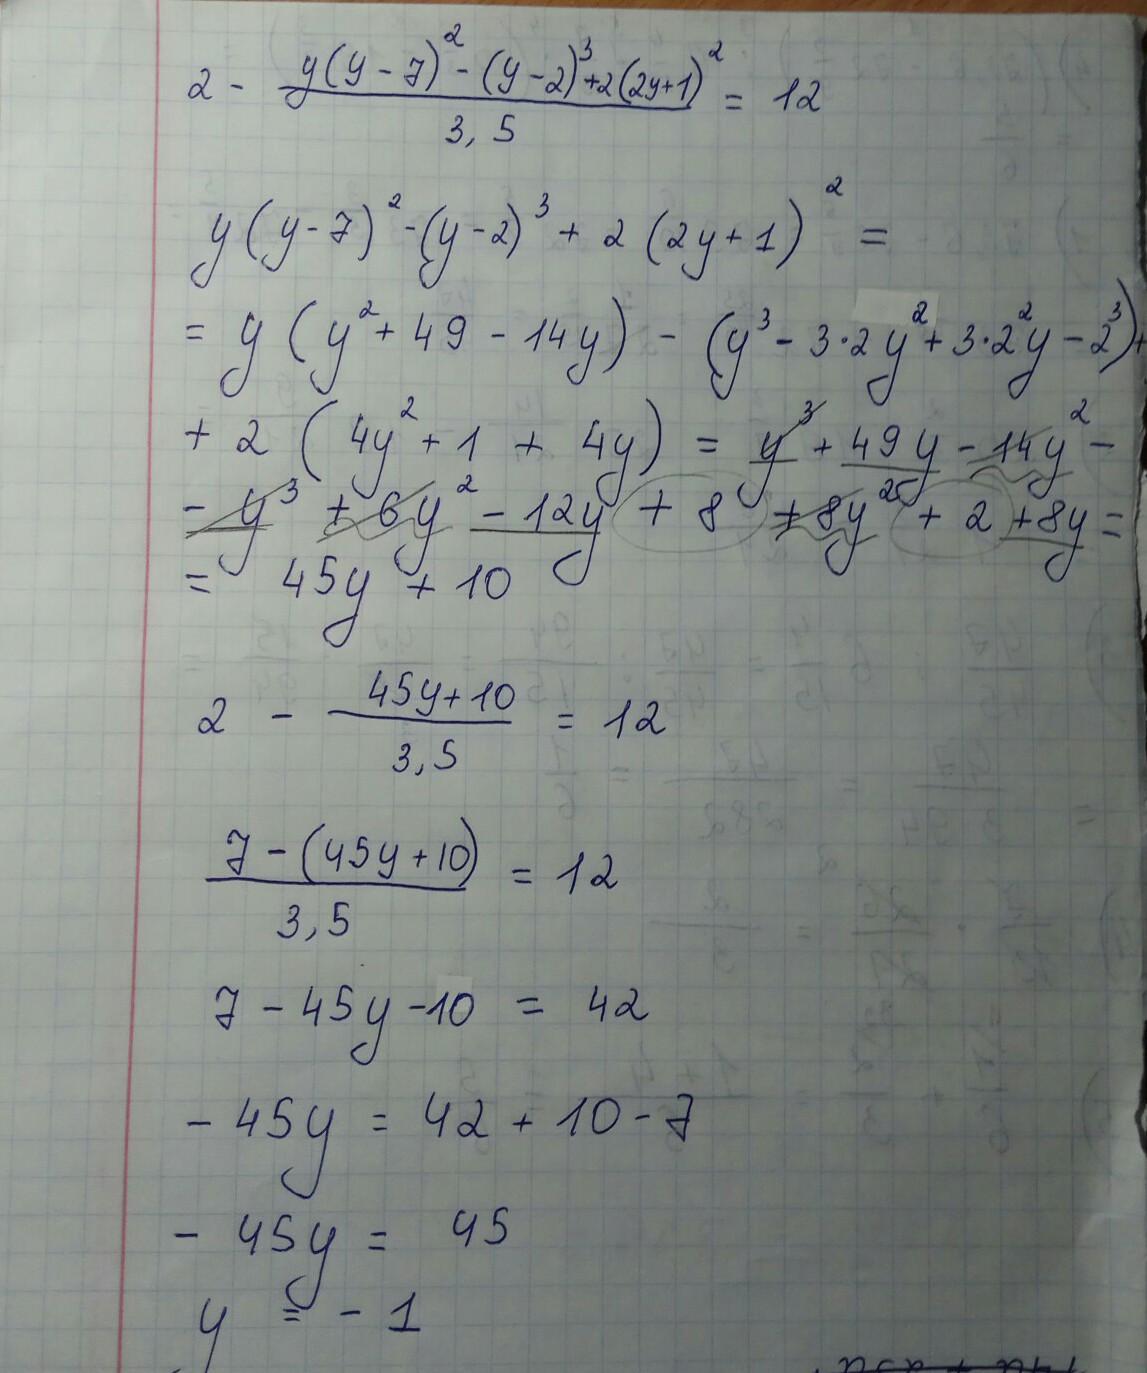 2 - \frac{y(y-7)^2 - (y-2)^3 + 2(2y+1)^2}{3,5} = 12
y(y-7)^2 - (y-2)^3 + 2(2y+1)^2 =
= y(y^2 + 49 - 14y) - (y^3 - 3·2y^2 + 3·2^2y - 2^3) +
+ 2(4y^2 + 1 + 4y) = y^3 + 49y - 14y^2 -
- y^3 + 6y^2 - 12y + 8 + 8y^2 + 2 + 8y =
= 45y + 10
2 - \frac{45y+10}{3,5} = 12
\frac{7 - (45y+10)}{3,5} = 12
7 - 45y - 10 = 42
- 45y = 42 + 10 - 7
- 45y = 45
y = - 1